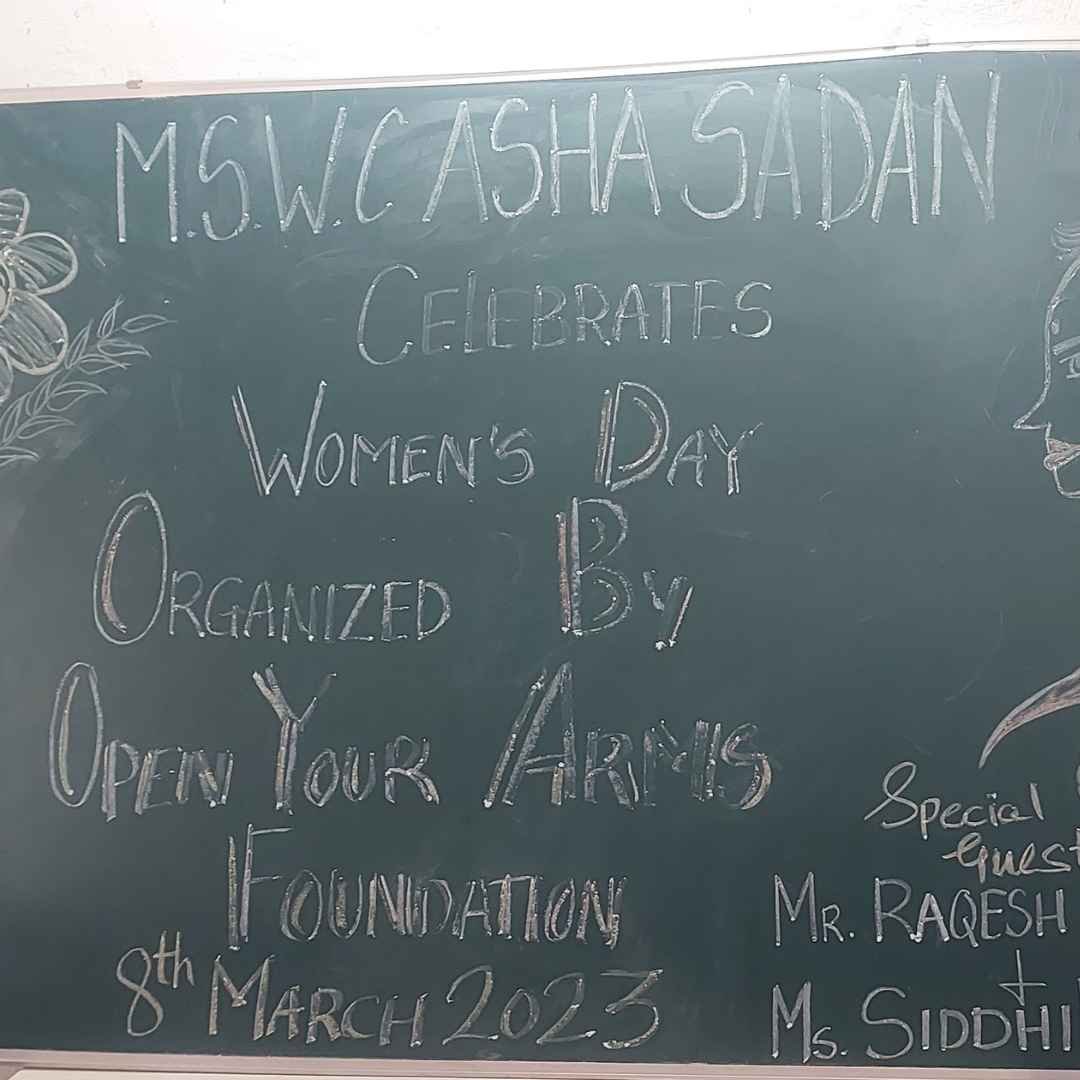 M.S.W.C ASHA SADAN
CELEBRATES
WOMEN'S DAY
ORGANIZED BY
OPEN YOUR ARMS
FOUNDATION
8th MARCH 2023
Special
Guest
MR. RAQESH
+
MS. SIDDHI